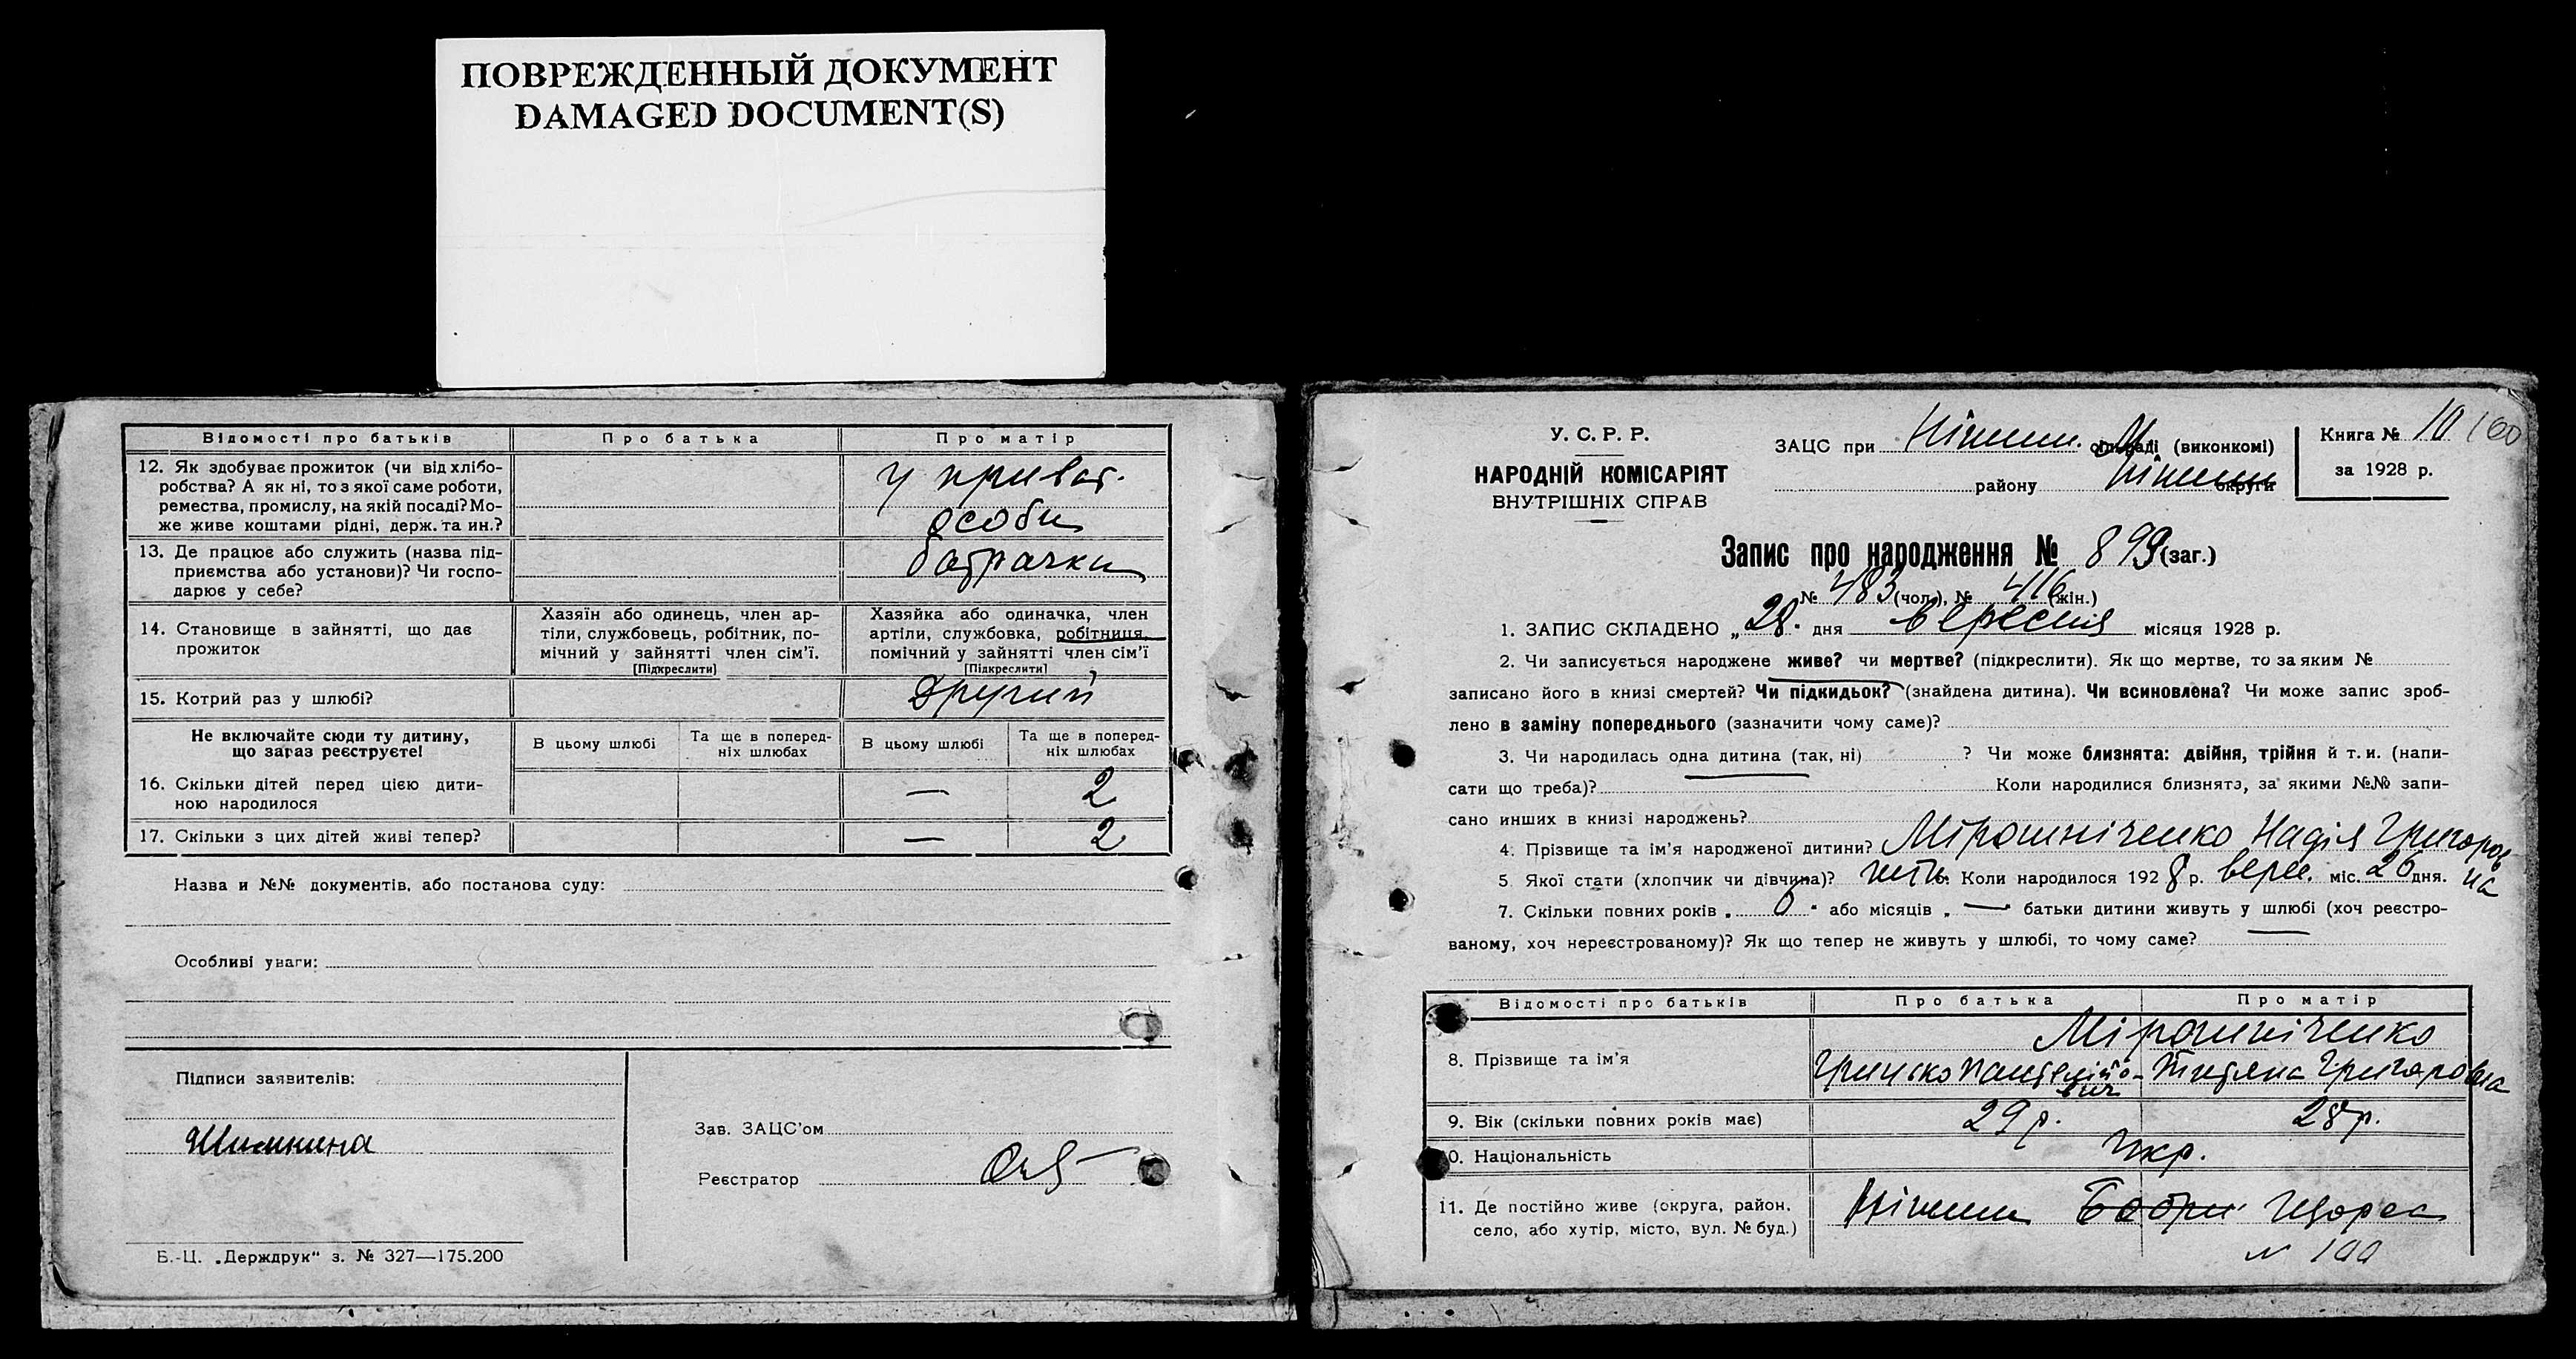 ПОВРЕЖДЕННЫЙ ДОКУМЕНТ
DAMAGED DOCUMENT(S)
Відомості про батьків Про батька Про матір
12. Як здобуває прожиток (чи від хлібо-
робства? А як ні, то з якої саме роботи,
ремества, промислу, на якій посаді? Мо-
же живе коштами рідні, держ. та ин.?
у приват.
особи
13. Де працює або служить (назва під-
приємства або установи)? Чи госпо-
дарює у себе?
батрачка
14. Становище в зайнятті, що дає
прожиток
Хазяїн або одинець, член ар-
тіли, службовець, робітник, по-
мічний у зайнятті член сім'ї.
[Підкреслити]
Хазяйка або одиначка, член
артіли, службовка, робітниця,
помічний у зайнятті член сім'ї
[Підкреслити]
15. Котрий раз у шлюбі? другий
Не включайте сюди ту дитину,
що зараз реєструєте!
В цьому шлюбі Та ще в поперед-
ніх шлюбах
В цьому шлюбі Та ще в поперед-
ніх шлюбах
16. Скільки дітей перед цією дити-
ною народилося — 2
17. Скільки з цих дітей живі тепер? — 2
Назва и №№ документів, або постанова суду:
Особливі уваги:
Підписи заявителів:
Шимкина
Зав. ЗАЦС'ом
Реєстратор
Б.-Ц. „Держдрук“ з. № 327—175.200
У. С. Р. Р.
НАРОДНІЙ КОМІСАРІЯТ
ВНУТРІШНІХ СПРАВ
ЗАЦС при Ніжин. (виконкомі)
району Ніжин округи
Книга № 10 160
за 1928 р.
Запис про народження № 899 (заг.)
№ 483 (чол.), № 416 (жін.)
1. ЗАПИС СКЛАДЕНО „28. дня вересня місяця 1928 р.
2. Чи записується народжене живе? чи мертве? (підкреслити). Як що мертве, то за яким №
записано його в книзі смертей? Чи підкидьок? (знайдена дитина). Чи всиновлена? Чи може запис зроб-
лено в заміну попереднього (зазначити чому саме)?
3. Чи народилась одна дитина (так, ні) ? Чи може близнята: двійня, трійня й т. и. (напи-
сати що треба)? Коли народилися близнята, за якими №№ запи-
сано инших в книзі народжень?
4. Прізвище та ім'я народженої дитини? Мірошніченко Надія Григоров
на
5. Якої стати (хлопчик чи дівчина)? жіть. 6. Коли народилося 1928 р. верес. міс. 26 дня.
7. Скільки повних років „ 6 “ або місяців „ — “ батьки дитини живуть у шлюбі (хоч реєстро-
ваному, хоч нереєстрованому)? Як що тепер не живуть у шлюбі, то чому саме?
Відомості про батьків Про батька Про матір
8. Прізвище та ім'я
Мірошніченко
Гринько Пантелійо-
вич
Титяна Григоровна
9. Вік (скільки повних років має) 29 р. 28 р.
10. Національність Укр.
11. Де постійно живе (округа, район,
село, або хутір, місто, вул. № буд.)
Ніжин Щорса
№ 100